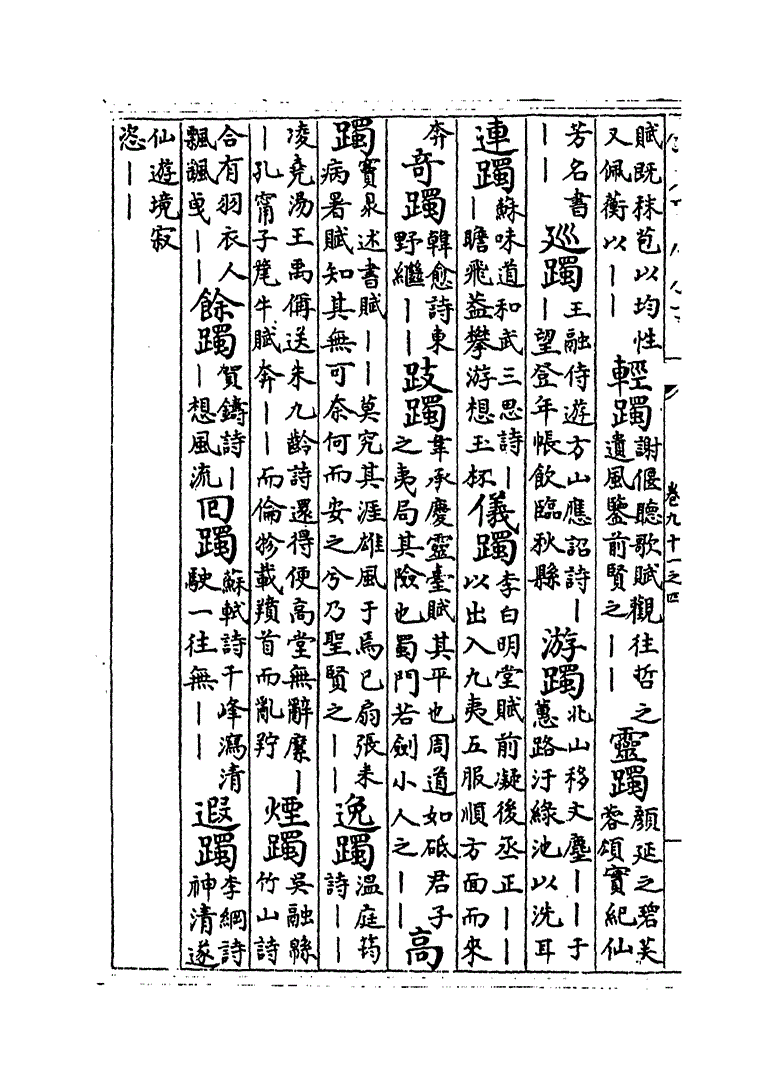 賦既秣芑以均性又佩蘅以丨丨輕躅謝偃聽歌賦觀往哲之遺風鑒前賢之丨丨靈躅顏延之碧芙蓉頌實紀仙
芳名書丨丨巡躅王融侍遊方山應詔詩丨丨望登年帳飲臨秋縣游躅北山移文塵丨丨于蕙路汙綠池以洗耳
連躅蘇味道和武三思詩丨丨瞻飛蓋攀游想玉杯儀躅李白明堂賦前凝後丞正丨丨以出入九夷五服順方面而來
奔奇躅韓愈詩東野繼丨丨跂躅韋承慶靈臺賦其平也周道如砥君子之夷局其險也蜀門若劍小人之丨丨高
躅竇臮述書賦丨丨莫究其涯雄風于焉已扇張耒病暑賦知其無可奈何而安之兮乃聖賢之丨丨逸躅溫庭筠詩丨丨
凌堯湯王禹偁送朱九齡詩還得便高堂無辭縻丨丨孔甯子氂牛賦奔丨丨而倫載首而亂煙躅吳融綿竹山詩
合有羽衣人飄颻曳丨丨餘躅賀鑄詩丨丨想風流回躅蘇軾詩千峰瀉清駛一往無丨丨遐躅李綱詩神清遂
仙遊境寂恣丨丨
卷九十一之四